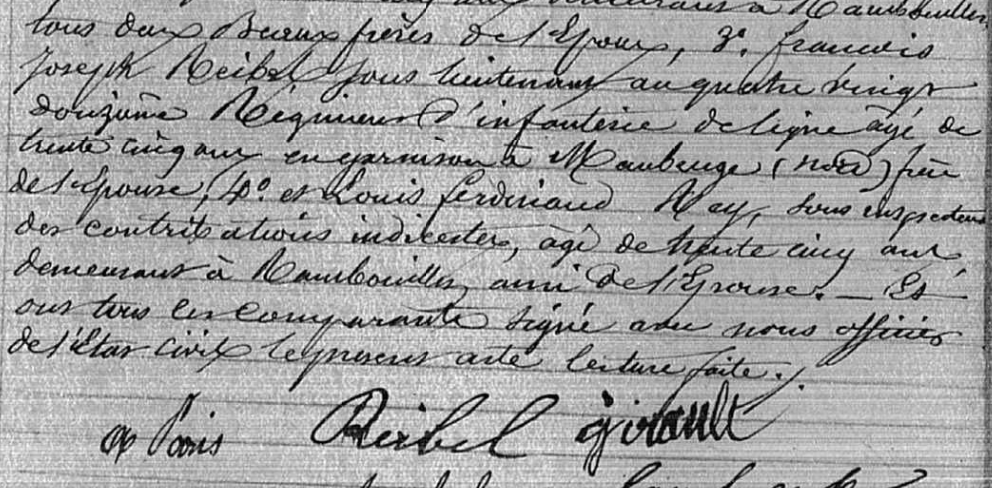 demeurant à Rambouillet,
tous deux Beaux frères de l'Epoux, 3º. francois
Joseph Reibel sous lieutenant au quatre vingt
douzième Régiment d'infanterie de ligne âgé de
trente cinq ans en garnison à Maubeuge (nord) frère
de l'Epouse, 4º. et Louis ferdinand Ray, sous inspecteur
des contributions indirectes, âgé de trente cinq ans
demeurant à Rambouillet, ami de l'Epouse. _ Et
ont tous les comparants signé avec nous officier
de l'Etat civil le présent acte lecture faite.
Reibel girault